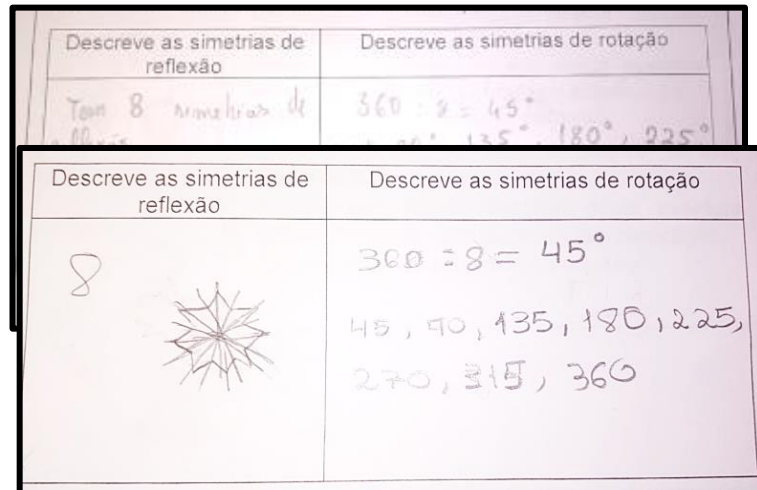 Descreve as simetrias de
reflexão
Descreve as simetrias de rotação
Tem 8 simetrias de
360 : 8 = 45°
135°, 180°, 225°
Descreve as simetrias de
reflexão
Descreve as simetrias de rotação
8
360 : 8 = 45°
45, 90, 135, 180, 225,
270, 315, 360